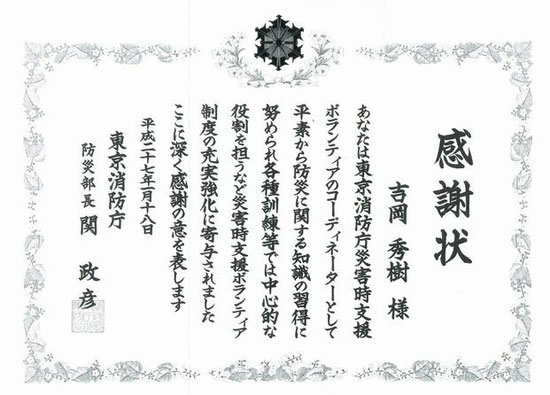 感謝状
吉岡 秀樹 様
あなたは東京消防庁災害時支援
ボランティアのコーディネーターとして
平素から防災に関する知識の習得に
努められ各種訓練等では中心的な
役割を担うなど災害時支援ボランティア
制度の充実強化に寄与されました
ここに深く感謝の意を表します
平成二十七年一月十八日
東京消防庁
防災部長 関 政彦